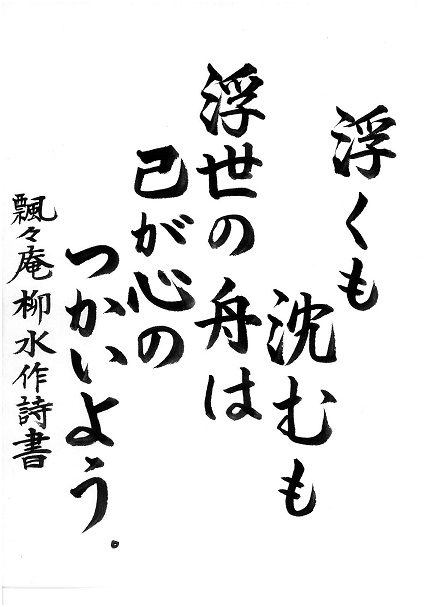 浮くも
沈むも
浮世の
舟は
己が心の
つかいよう。
飄々庵柳水作詩書